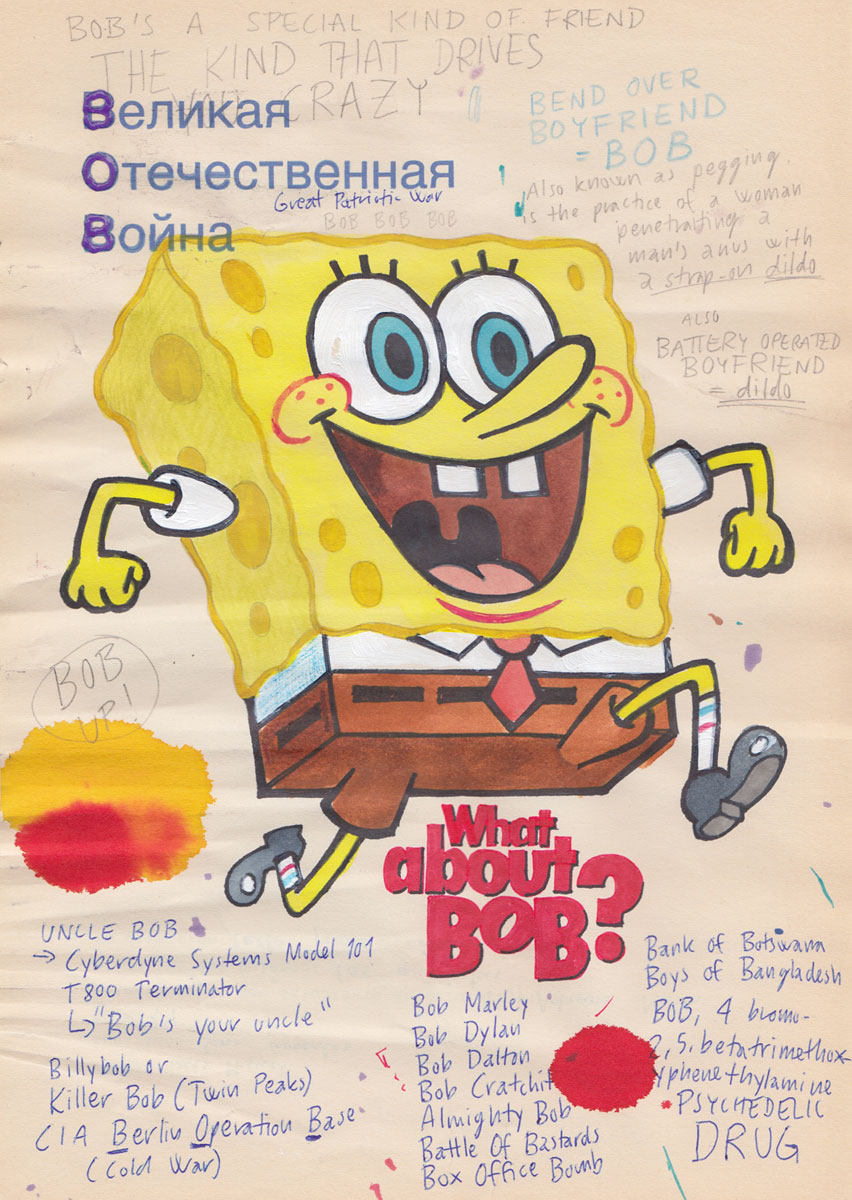 BOB'S A SPECIAL KIND OF FRIEND
THE KIND THAT DRIVES
YOU CRAZY
Великая
Отечественная
Great Patriotic War
BOB BOB BOB
Война
BEND OVER
BOYFRIEND
= BOB
Also known as pegging.
is the practice of a woman
penetrating a
man's anus with
a strap-on dildo
ALSO
BATTERY OPERATED
BOYFRIEND
= dildo
BOB
UP!
What
about
BOB?
UNCLE BOB
→ Cyberdyne Systems Model 101
T800 Terminator
↳ "Bob's your uncle"
Billybob or
Killer Bob (Twin Peaks)
CIA Berlin Operation Base
(Cold War)
Bob Marley
Bob Dylan
Bob Dalton
Bob Cratchit
Almighty Bob
Battle Of Bastards
Box Office Bomb
Bank of Botswana
Boys of Bangladesh
BOB, 4 bromo-
2,5, betatrimethox-
yphenethylamine
* PSYCHEDELIC
DRUG